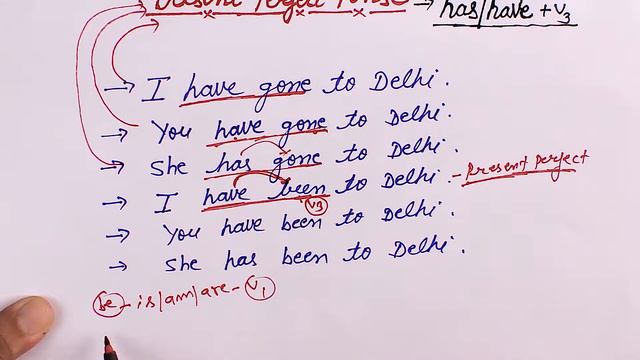 Present Perfect Tense → has/have + V3
→ I have gone to Delhi.
→ You have gone to Delhi.
→ She has gone to Delhi.
→ I have been to Delhi. - Present perfect
V3
→ You have been to Delhi.
→ She has been to Delhi.
be - is/am/are - V1